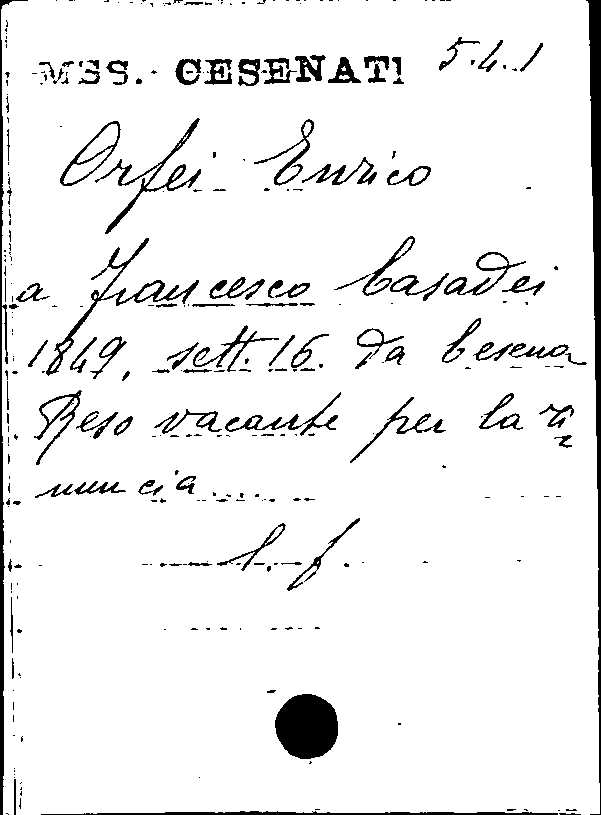 MSS. CESENATI 5.4.1
Orfei Enrico
a Francesco Casadei
1849, sett. 16. da Cesena
Reso vacante per la ri=
nuncia....
l. f.